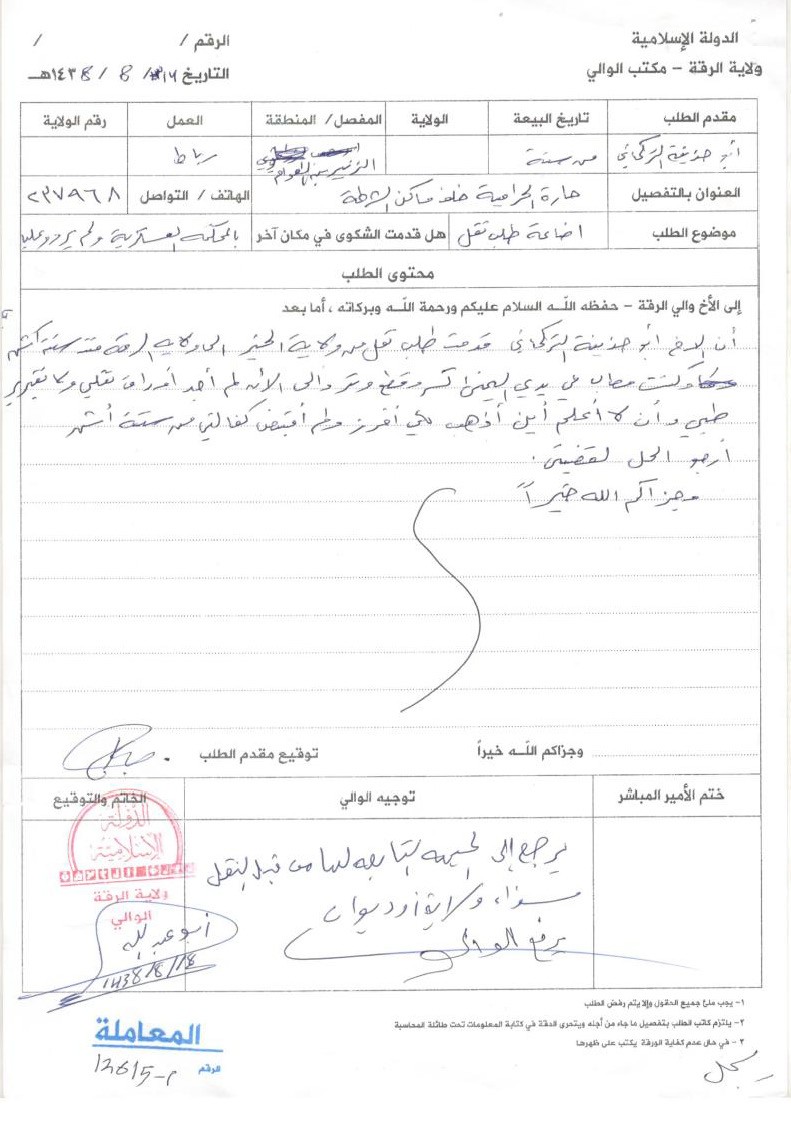 الدولة الإسلامية
ولاية الرقة – مكتب الوالي
الرقم / /
التاريخ ١٦ / 8 / ١٤٣8هـ
مقدم الطلب تاريخ البيعة الولاية المفصل/ المنطقة العمل رقم الولاية
أبو حذيفة التركماني من سنة الزبير بن العوام رباط
العنوان بالتفصيل حارة الحرامية خلف مساكن الشرطة الهاتف / التواصل ٢٣٧٩٦٨
موضوع الطلب اضاعة طلب نقل هل قدمت الشكوى في مكان آخر بالمحكمة العسكرية ولم يردو عليا
محتوى الطلب
إلى الأخ والي الرقة – حفظه اللـه السلام عليكم ورحمة اللـه وبركاته ، أما بعد
أن الاخ أبو حذيفة التركماني قدمت طلب نقل من ولاية الخير الى ولاية الرقة منذ ستة أشهر
وكنت مصاب في يدي اليمنى كسر وقطع وتر والى الأن لم أجد أوراق نقلي ولا تقرير
طبي وأن لا أعلم أين أذهب لكي أفرز ولم أقبض كفالتي من ستة أشهر
أرجو الحل لقضيتي .
وجزاكم الله خيراً
وجزاكم اللـه خيراً
توقيع مقدم الطلب
ختم الأمير المباشر توجيه الوالي الخاتم والتوقيع
يرجع إلى الجهة التابع لها من قبل النقل
سواء ولاية أو ديوان
يرفع الوالي
الدولة
الإسلامية
ولاية الرقة
الوالي
أبو عبد الله
١٤38/8/18
١– يجب ملئ جميع الحقول وإلا يتم رفض الطلب
٢– يلتزم كاتب الطلب بتفصيل ما جاء من أجله ويتحرى الدقة في كتابة المعلومات تحت طائلة المحاسبة
٣ – في حال عدم كفاية الورقة يكتب على ظهرها
يسجل
المعاملة
الرقم